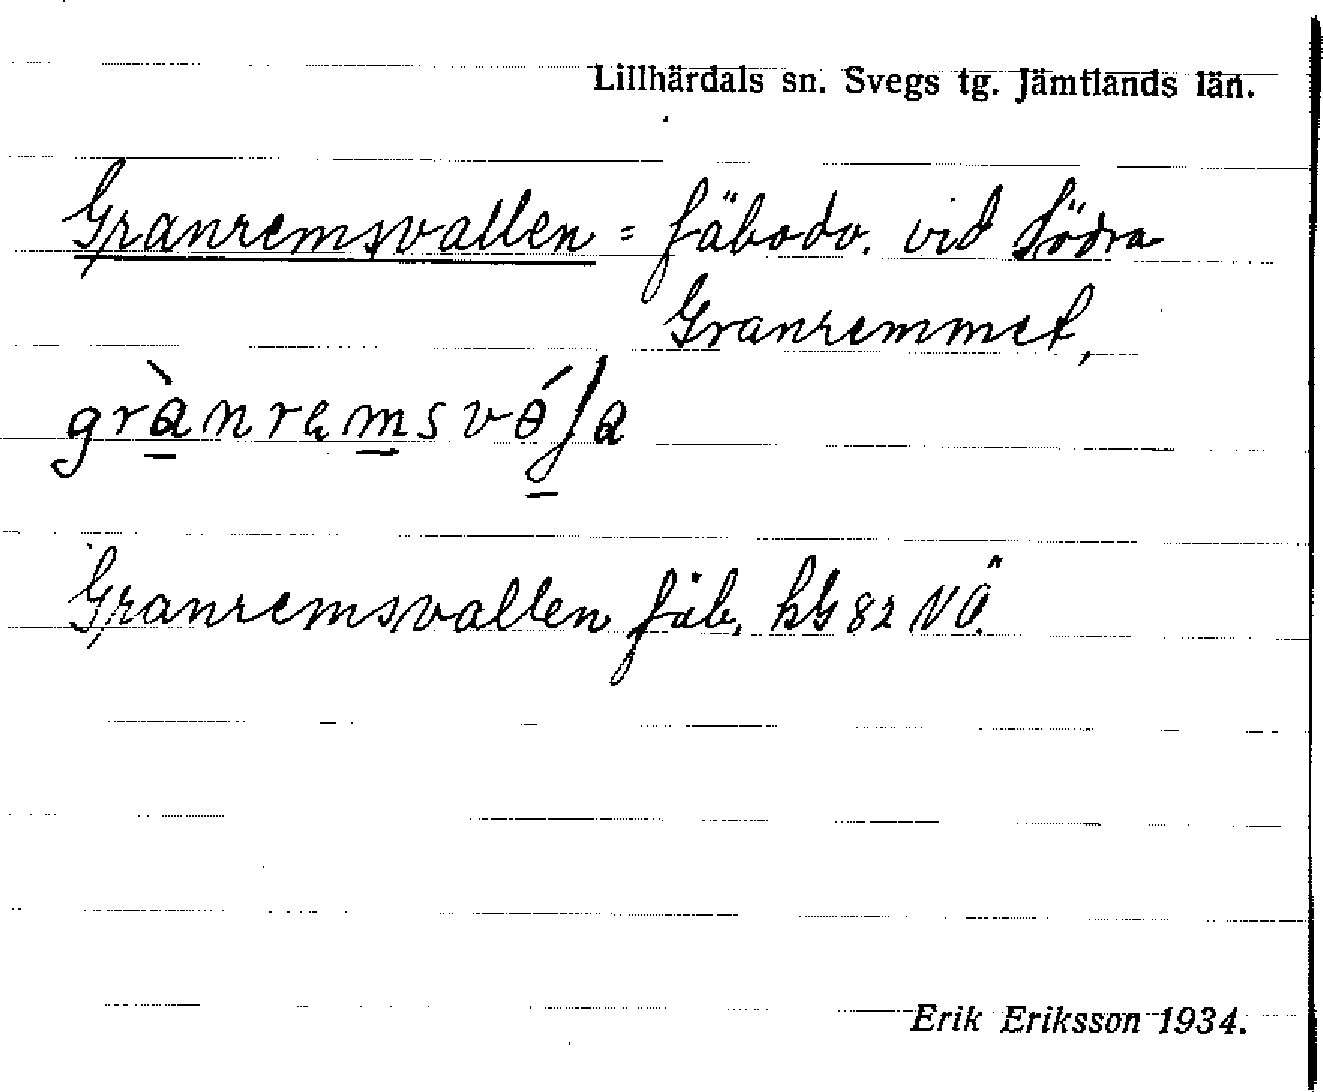 Lillhärdals sn. Svegs tg. Jämtlands län.
Granremsvallen = fäbodv. vid Södra
Granremmet,
Granremsvallen fäb. kbl 82 NÖ.
Erik Eriksson 1934.